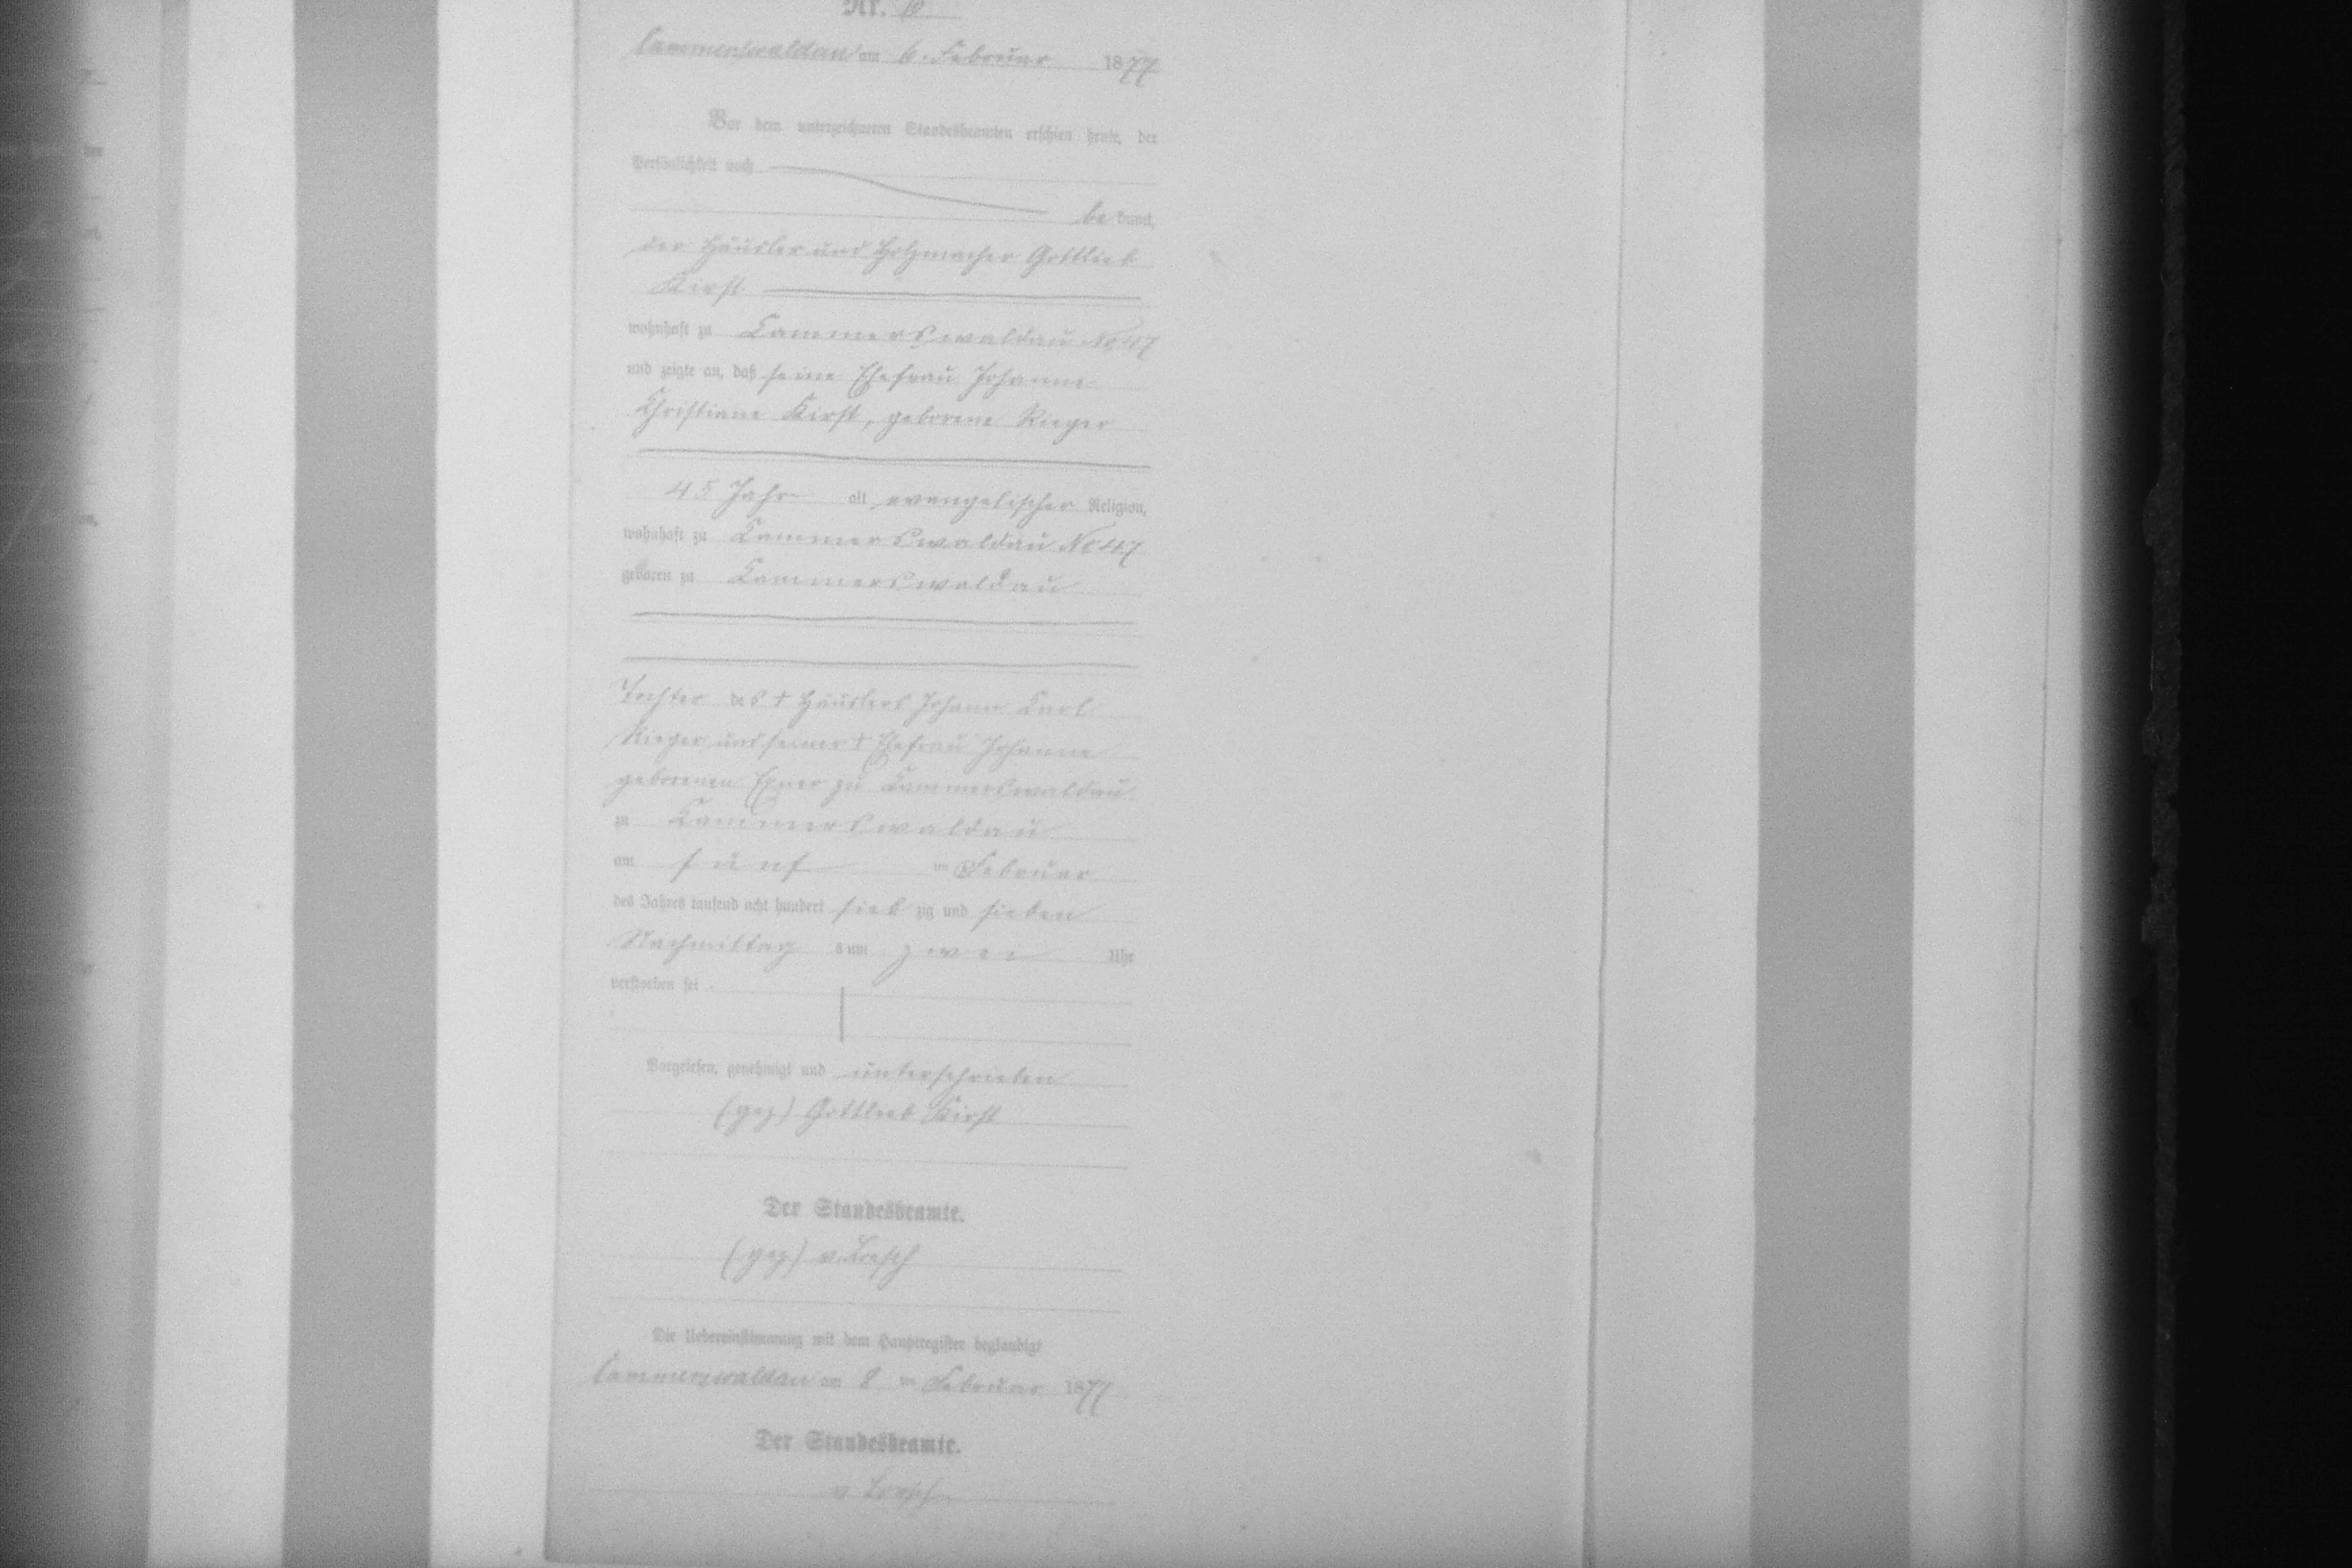 Nr. 10
Cammerswaldau am 6. Februar 1877
Vor dem unterzeichneten Standesbeamten erschien heute, der
Persönlichkeit nach
be kannt,
der Häusler und Holzmacher Gottlieb
Kirst
wohnhaft zu Cammerswaldau No 47
und zeigte an, daß seine Ehefrau Johanne
Christiane Kirst, geborene Rieger
45 Jahr alt, evangelischer Religion,
wohnhaft zu Cammerswaldau No 47
geboren zu Cammerswaldau
Tochter des † Häuslers Johann Carl
Rieger und seiner † Ehefrau Johanne
geborenen Exner zu Cammerswaldau
zu Cammerswaldau
am fünf ten Februar
des Jahres tausend acht hundert sieb zig und sieben
Nachmittag s um zwei Uhr
verstorben sei
Vorgelesen, genehmigt und unterschrieben
(gez) Gottlieb Kirst
Der Standesbeamte.
(gez) v. Loesch
Die Uebereinstimmung mit dem Hauptregister beglaubigt
Cammerswaldau am 8 ten Februar 1877
Der Standesbeamte.
v. Loesch